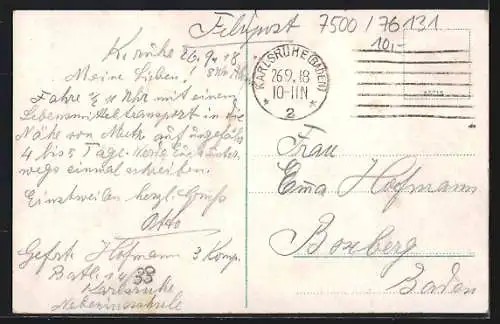 Feldpost 7500 / 76131
10,-
K. ruhe 26.9.18.
Meine Lieben!
Fahre ½ 11 Uhr mit einem
Lebensmitteltransport in die
Nähe von Metz auf ungefähr
4 bis 5 Tage. Werde Euch unter-
wegs einmal schreiben.
Einstweilen herzl. Gruß
Otto
Gefrt. Hofmann 3 Komp.
Batl.
Karlsruhe
KARLSRUHE (BADEN)
26.9.18
10-11N
* 2 *
Frau
Emma Hofmann
Boxberg
Baden